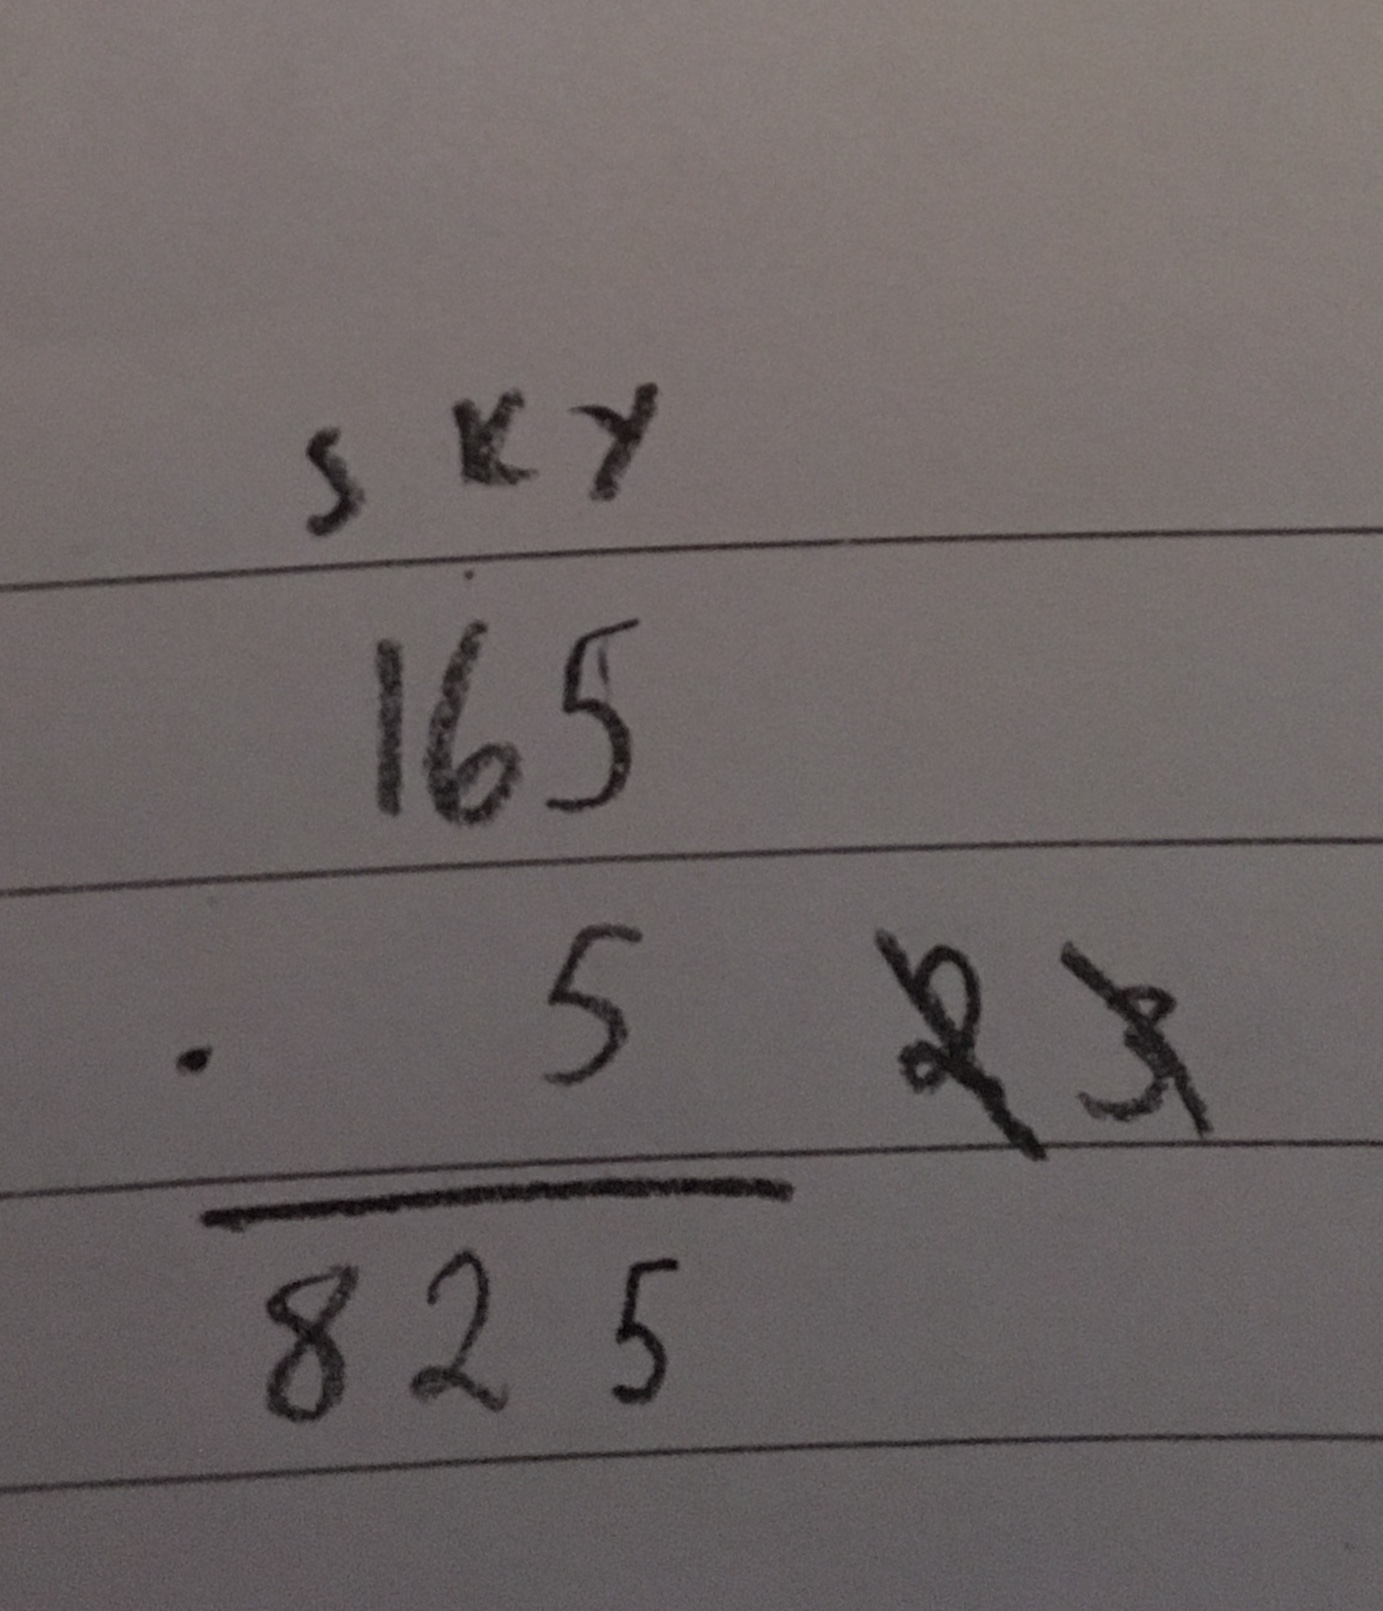 S K Y
165
. 5 2 3
825